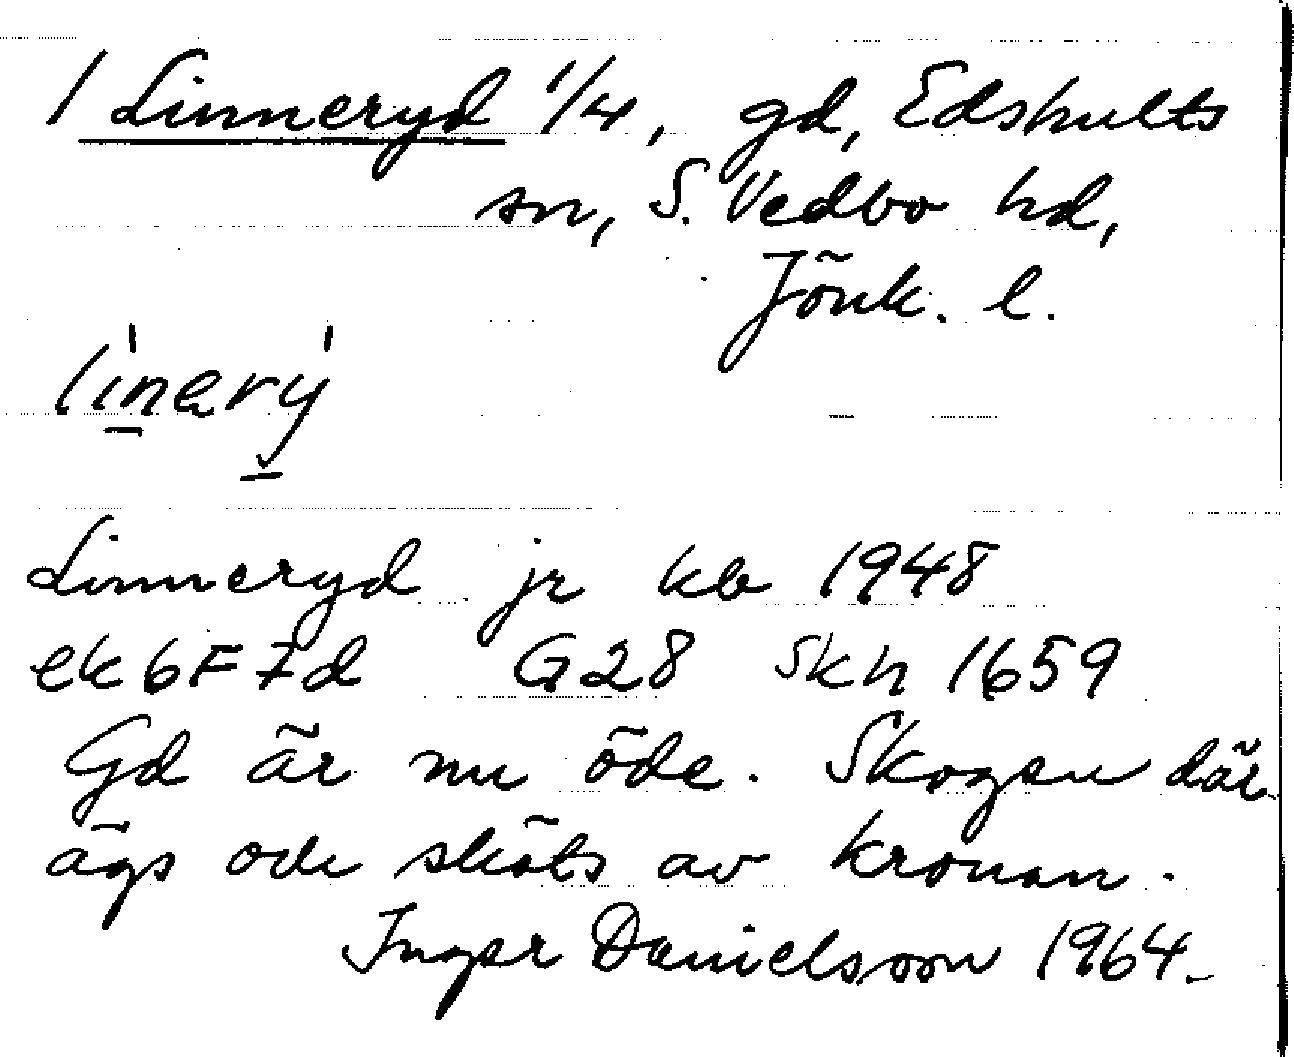 / Linneryd 1/4, gd, Edshults
sn, S. Vedbo hd,
Jönk. l.
linery
Linneryd jr kb 1948
ek 6F7d G28 Skh 1659
Gd är nu öde. Skogen där
ägs och sköts av kronan.
Inger Danielsson 1964.